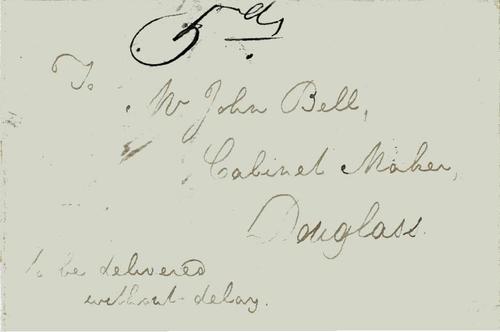 5ds
To
Mr John Bell,
Cabinet Maker,
Douglass.
to be delivered
without delay.